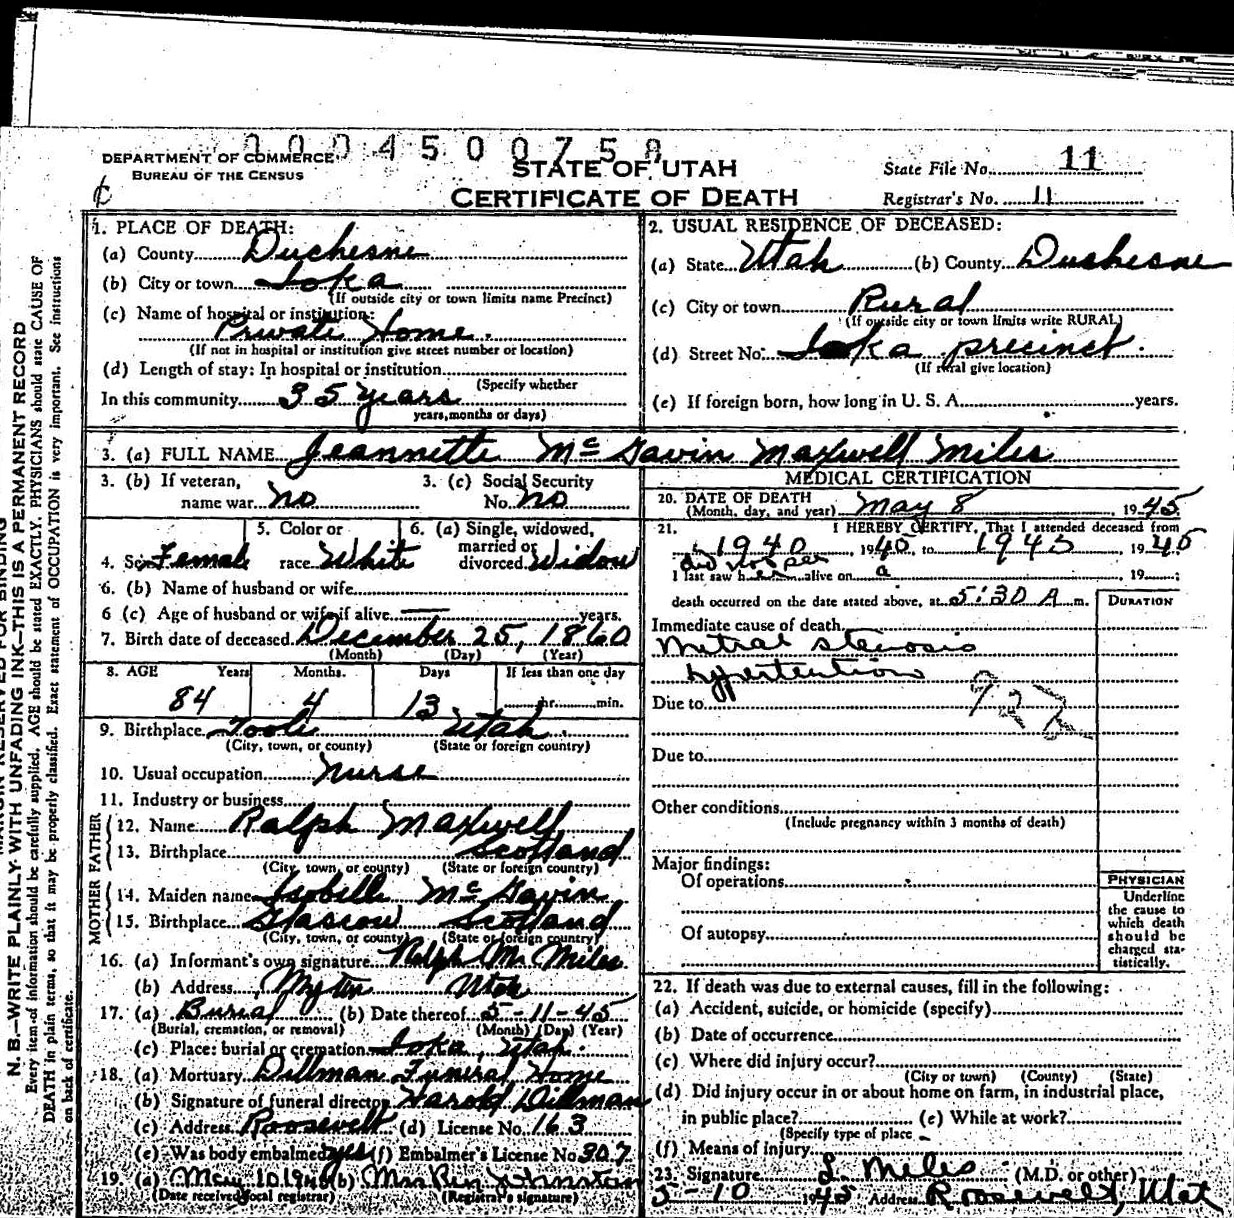 0004500758
DEPARTMENT OF COMMERCE
BUREAU OF THE CENSUS
STATE OF UTAH
CERTIFICATE OF DEATH
State File No. 11
Registrar's No. 11
1. PLACE OF DEATH:
(a) County Duchesne
(b) City or town Ioka
(If outside city or town limits name Precinct)
(c) Name of hospital or institution:
Private Home.
(If not in hospital or institution give street number or location)
(d) Length of stay: In hospital or institution
(Specify whether
In this community 35 years
years, months or days)
2. USUAL RESIDENCE OF DECEASED:
(a) State Utah (b) County Duchesne
(c) City or town Rural
(If outside city or town limits write RURAL)
(d) Street No. Ioka precinct.
(If rural give location)
(e) If foreign born, how long in U. S. A. years.
3. (a) FULL NAME Jeannette McGavin Maxwell Miles
3. (b) If veteran, name war no
3. (c) Social Security No. no
4. Sex Female
5. Color or race White
6. (a) Single, widowed, married or divorced Widow
6. (b) Name of husband or wife
6 (c) Age of husband or wife if alive — years.
7. Birth date of deceased December 25, 1860
(Month) (Day) (Year)
8. AGE Years Months. Days If less than one day
84 4 13 hr. min.
9. Birthplace Tooele Utah.
(City, town, or county) (State or foreign country)
10. Usual occupation nurse
11. Industry or business
FATHER
12. Name Ralph Maxwell
13. Birthplace Scotland
(City, town, or county) (State or foreign country)
MOTHER
14. Maiden name Isobelle McGavin
15. Birthplace Glascow Scotland
(City, town, or county) (State or foreign country)
16. (a) Informant's own signature Ralph M. Miles
(b) Address Myton Utah
17. (a) Burial (b) Date thereof 5-11-45
(Burial, cremation, or removal) (Month) (Day) (Year)
(c) Place: burial or cremation Ioka, Utah.
18. (a) Mortuary Dillman Funeral Home
(b) Signature of funeral director Harold Dillman
(c) Address Roosevelt (d) License No. 163
(e) Was body embalmed yes (f) Embalmer's License No 307
19. (a) May 10 (b) Mrs
(Date received local registrar) (Registrar's signature)
MEDICAL CERTIFICATION
20. DATE OF DEATH
(Month, day, and year) May 8 1945
21. I HEREBY CERTIFY, That I attended deceased from
1940, 1940, to 1945 1945
did not see
I last saw her alive on 19 ;
death occurred on the date stated above, at 5:30 A m.
DURATION
Immediate cause of death
Mitral stenosis
hypertention
Due to
92
Due to
Other conditions
(Include pregnancy within 3 months of death)
Major findings:
Of operations
Of autopsy
PHYSICIAN
Underline
the cause to
which death
should be
charged sta-
tistically.
22. If death was due to external causes, fill in the following:
(a) Accident, suicide, or homicide (specify)
(b) Date of occurrence
(c) Where did injury occur?
(City or town) (County) (State)
(d) Did injury occur in or about home on farm, in industrial place,
in public place? (e) While at work?
(Specify type of place
(f) Means of injury
23. Signature L. Miles (M.D. or other)
5-10 1945 Address Roosevelt, Utah
N. B.—WRITE PLAINLY, WITH UNFADING INK—THIS IS A PERMANENT RECORD
Every item of information should be carefully supplied. AGE should be stated EXACTLY. PHYSICIANS should state CAUSE OF
DEATH in plain terms, so that it may be properly classified. Exact statement of OCCUPATION is very important. See instructions
on back of certificate.